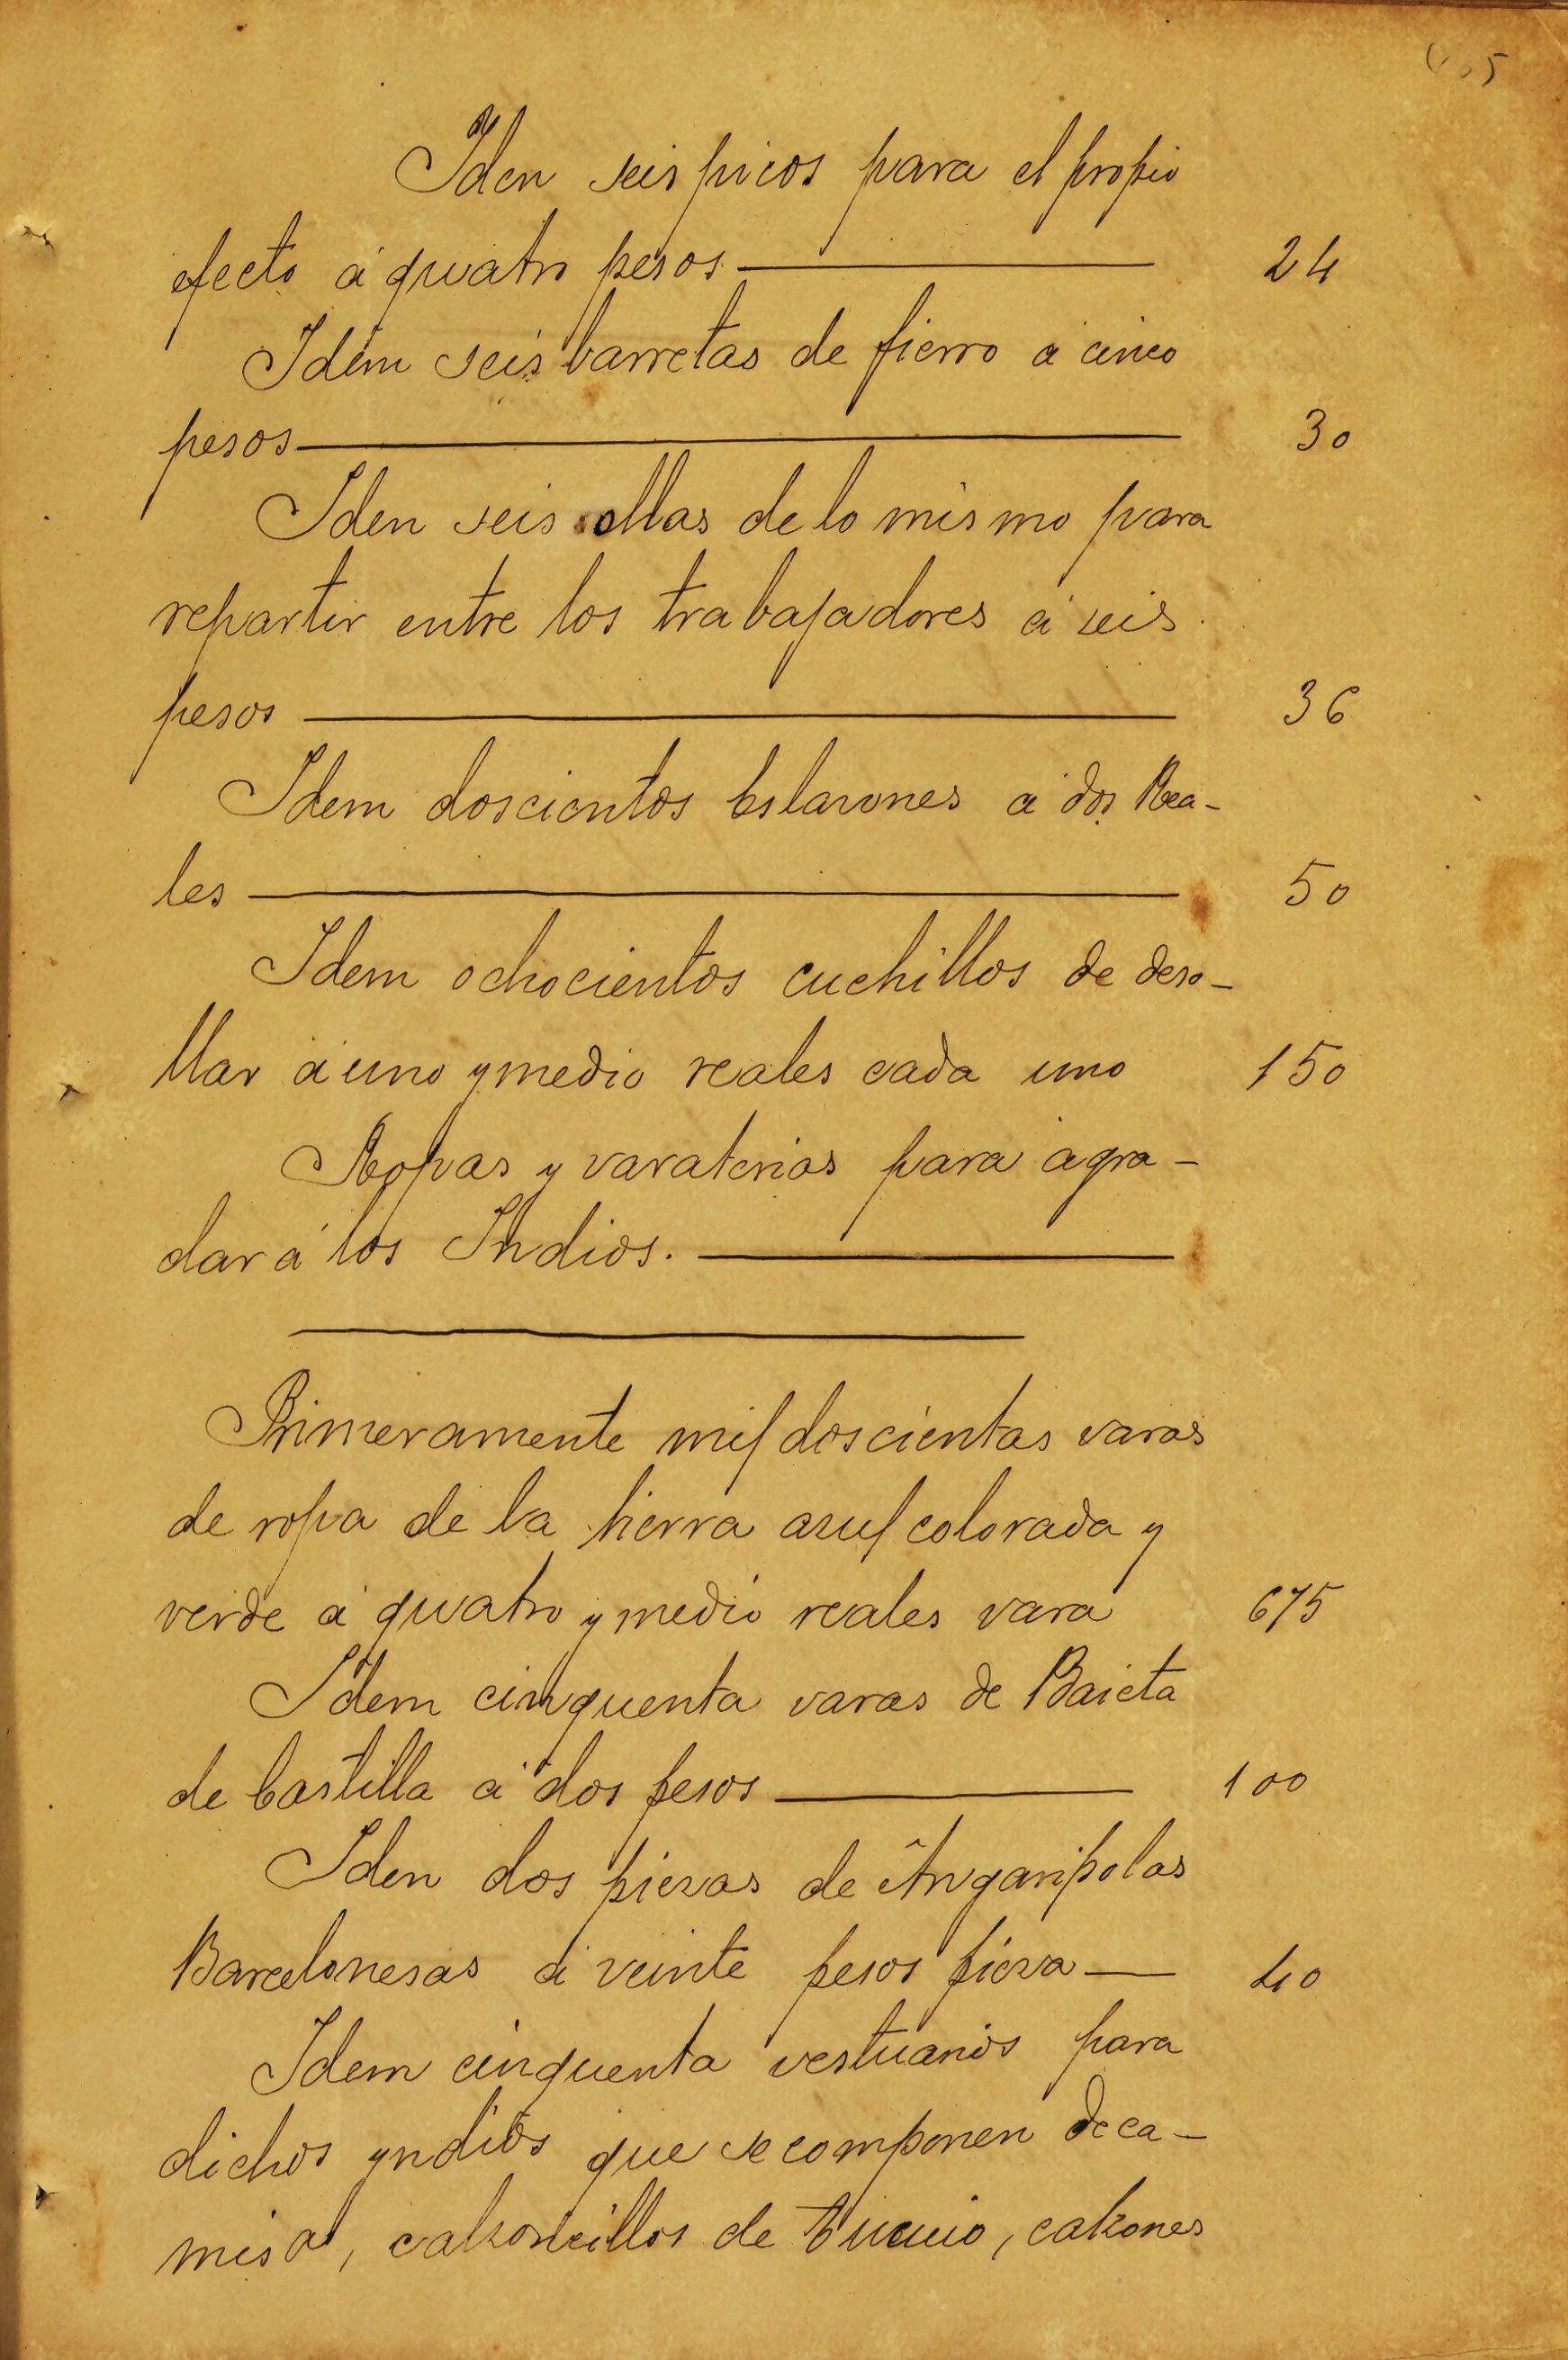 Iden seis picos para el propio
efecto á quatro pesos — 24
Idem seis barretas de fierro á cinco
pesos — 30
Iden seis ollas de lo mismo para
repartir entre los trabajadores á seis
pesos — 36
Idem doscientos Eslavones á dos Rea-
les — 50
Idem ochocientos cuchillos de deso-
llar á uno y medio reales cada uno 150
Ropas y varaterias para agra-
dar á los Indios. —
Primeramente mil doscientas varas
de ropa de la tierra azul colorada y
verde á quatro y medio reales vara 675
Idem cinquenta varas de Baieta
de Castilla á dos pesos — 100
Iden dos piezas de Angaripolas
Barcelonesas á veinte pesos pieza — 40
Idem cinquenta vestuarios para
dichos yndios que se componen de ca-
misa, calzoncillos de tucuio, calzones